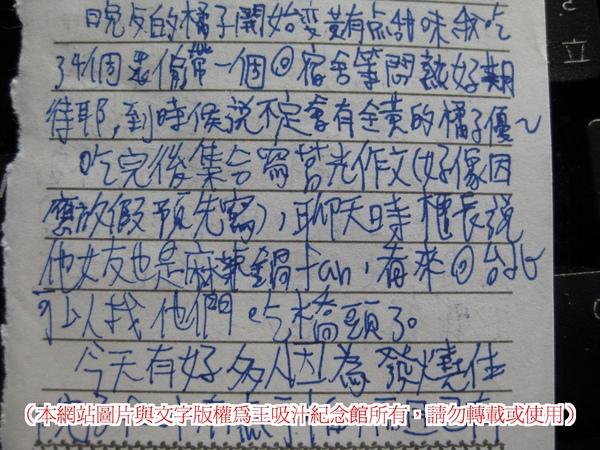 晚点的橘子開始變黃有点甜味我吃
了4個 還偷帶一個回宿舍等悶熟好期
待耶,到時候說不定會有金黃的橘子優~
吃完後集合寫莒光作文(好像因
應放假預先寫),聊天時 長說
他女友也是麻辣鍋fan,看來回台北
可以找他們吃橋頭了。
今天有好多人因為發燒住
(本網站圖片與文字版權為王吸汁紀念館所有,請勿轉載或使用)
立